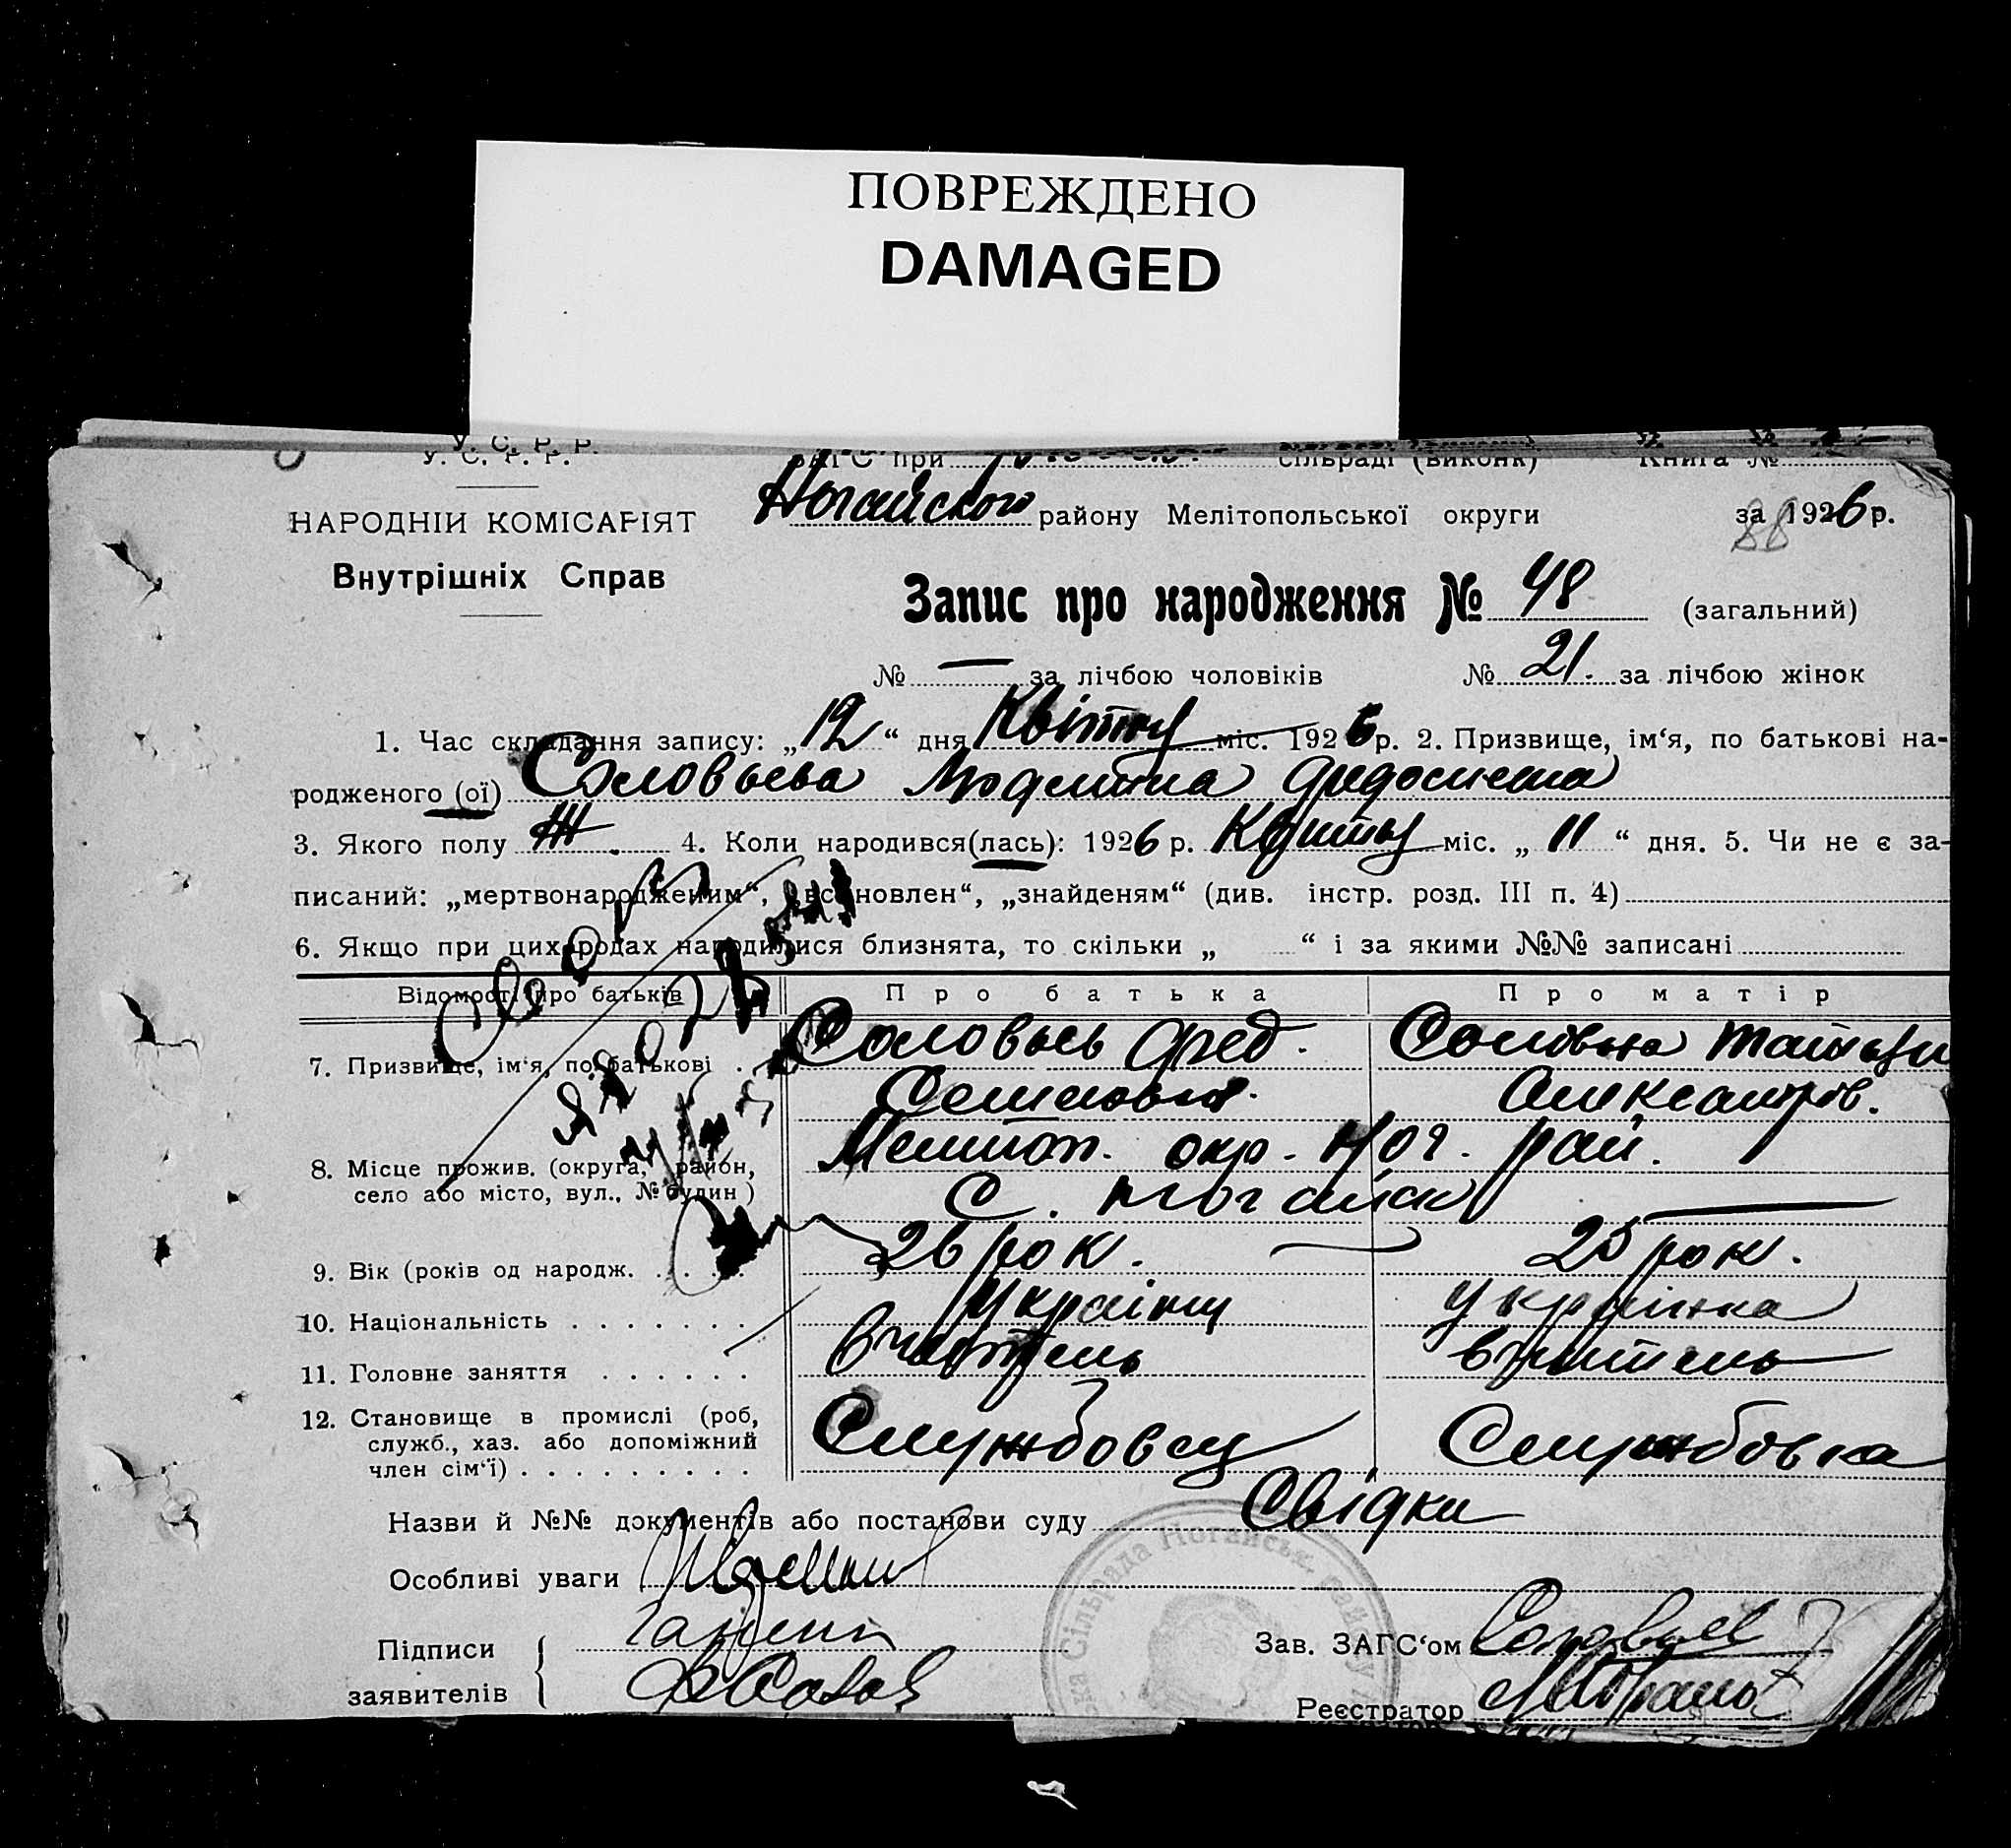 ПОВРЕЖДЕНО
DAMAGED
У. С. Р. Р.
У. С. Р. Р.
ЗАГС при сільраді (виконк) Книга №
НАРОДНІЙ КОМІСАРІЯТ
Ногайского району Мелітопольської округи за 1926 р.
88
Внутрішніх Справ
Запис про народження № 48 (загальний)
№ — за лічбою чоловіків № 21. за лічбою жінок
1. Час складання запису: „12“ дня Квітня міс. 1926 р. 2. Призвище, ім‘я, по батькові на-
родженого (ої) Соловьева Людмила
3. Якого полу Ж. 4. Коли народився(лась): 1926 р. Квітня міс. „11“ дня. 5. Чи не є за-
писаний: „мертвонародженим“, „всиновлен“, „знайденям“ (див. інстр. розд. III п. 4)
6. Якщо при цих родах народилися близнята, то скільки „ “ і за якими №№ записані
Відомості про батьків Про батька Про матір
7. Призвище, ім‘я, по батькові . Соловьев Фед. Соловьева Татьян
Семенович. Александров.
8. Місце прожив. (округа, район, Мелитоп. окр. Ног. рай.
село або місто, вул., № будин) с. Ногайск —
9. Вік (років од народж. . . . . 26 рок. 25 рок.
10. Національність . . . . . . . Українец Українка
11. Головне заняття . . . . . . вчитель вчитель
12. Становище в промислі (роб, Службовец Службовка
служб., хаз. або допоміжний
член сім‘ї) . . . . . . . . .
Назви й №№ документів або постанови суду Свідки
Особливі уваги
Підписи
Зав. ЗАГС‘ом Соловьев
заявителів
Реєстратор
Сільрада Ногайськ. Райну